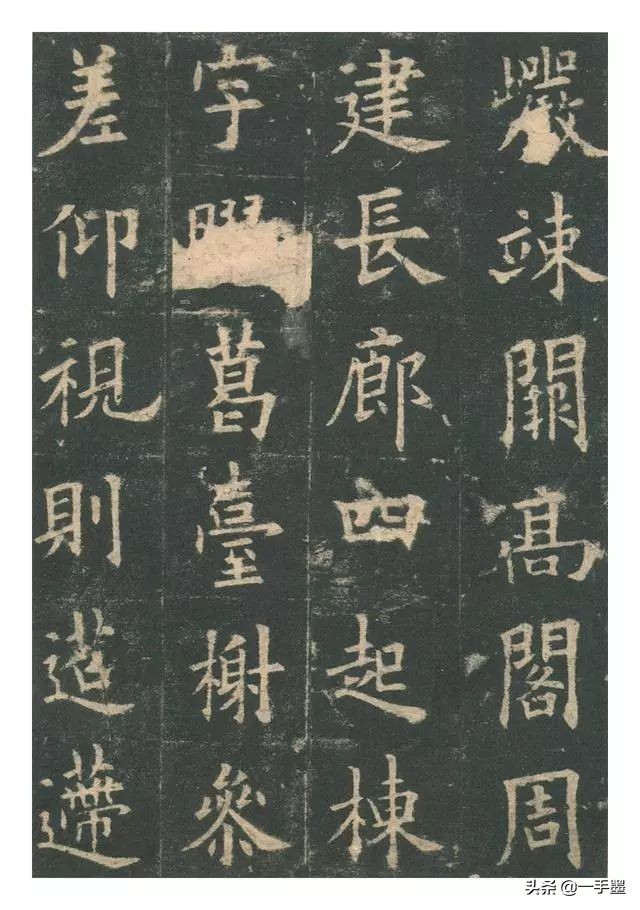 巖竦闕高閣周
建長廊四起棟
宇葛臺榭參
差仰視則迢遰
头条 @一手墨